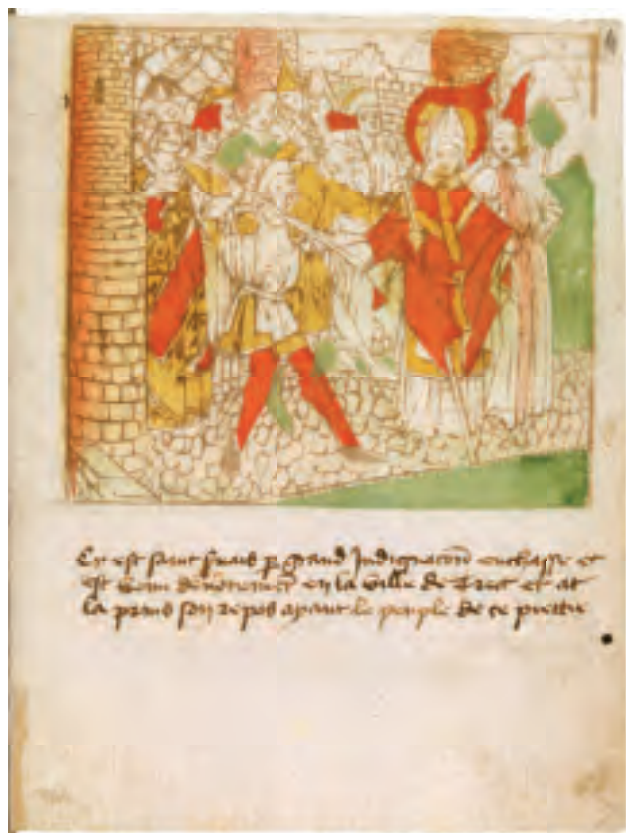 Cy est saint servais p grand Indignacon enchasse et
est venu en la ville de Trict et at
la prins son repos ayant le peuple de ce